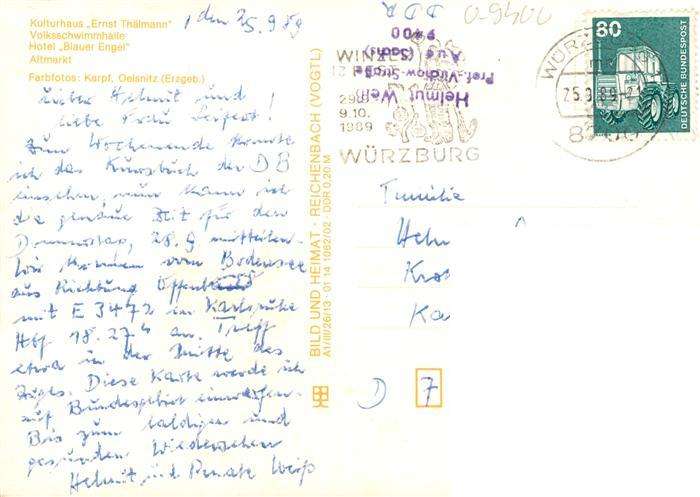 Kulturhaus „Ernst Thälmann"
Volksschwimmhalle
Hotel „Blauer Engel"
Altmarkt
Farbfotos: Karpf, Oelsnitz (Erzgeb.)
den 25.9.89
Lieber Helmut und
liebe Frau Seifert!
Zum Wochenende konnte
ich das Kursbuch der DB
einsehen, nun kann ich
die genaue Zeit für den
Donnerstag, 28.9 mitteilen.
Wir kommen vom Bodensee
aus Richtung Offenburg
mit E 3472 in Karlsruhe
Hbf 18.27 an. Treff
etwa in der Mitte des
Zuges. Diese Karte werde ich
auf Bundesgebiet einwerfen.
Bis zum baldigen und
gesunden Wiedersehen
Helmut und Renate Weiß
BILD UND HEIMAT · REICHENBACH (VOGTL)
A1/III/26/13 · 01 14 1062/02 · DDR 0,20 M
DDR
O-9400
Helmut Weiß
Prof.-Virchow-Straße
Aue (Sachs)
9400
29.
9.10.
1989
WÜRZBURG
80
DEUTSCHE BUNDESPOST
25.9.89
8700
Familie
D
7